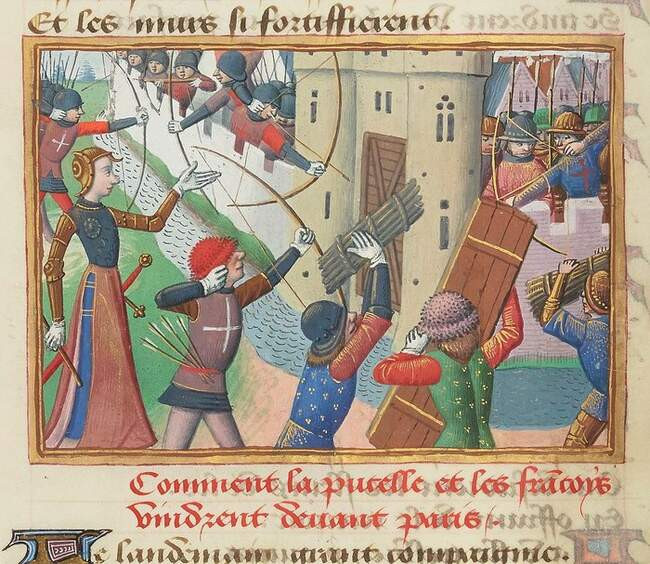 Et les murs si fortiffierent.
Comment la pucelle et les francoys
vindrent devant paris.
Le landemain grant compaignie.